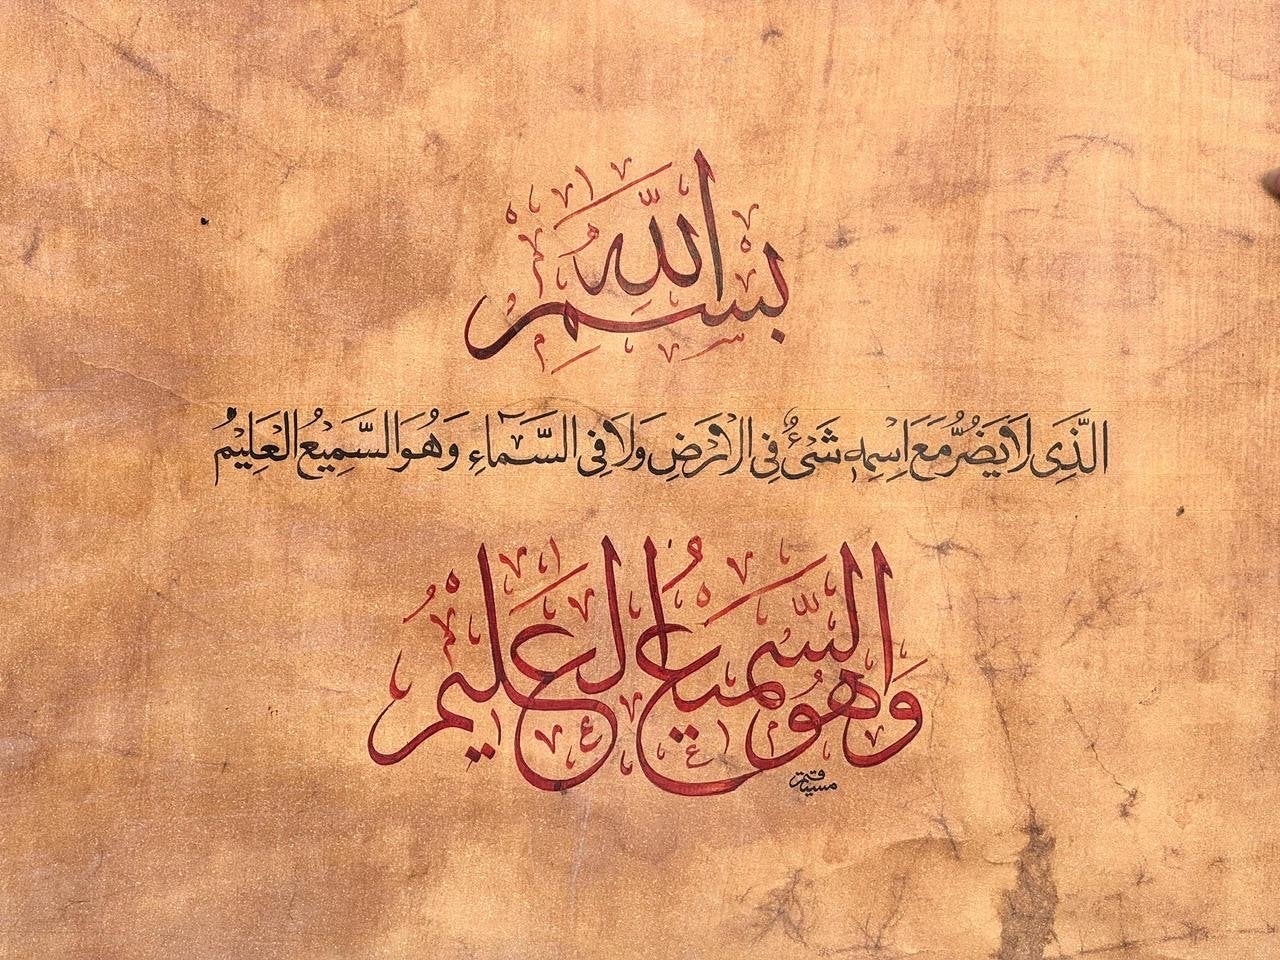 بِسْمِ اللهِ
الَّذِى لَا يَضُرُّ مَعَ اسْمِهِ شَىْءٌ فِى الْاَرْضِ وَلَا فِى السَّمَاءِ وَهُوَ السَّمِيعُ الْعَلِيْمُ
وَهُوَ السَّمِيعُ الْعَلِيْمُ